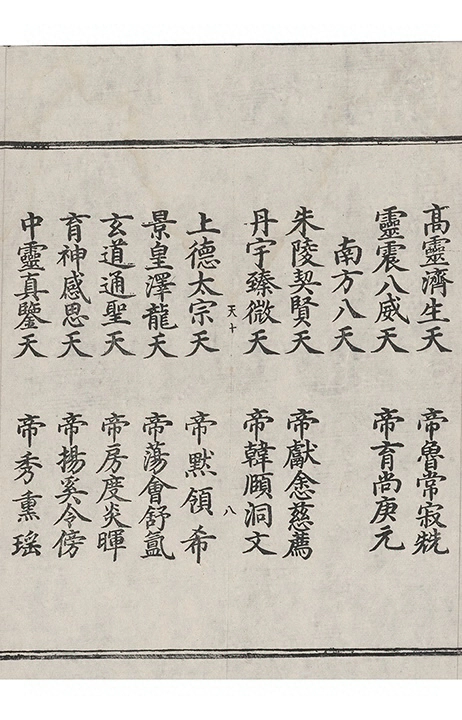 高靈濟生天 帝魯常寂兟
靈震八威天 帝育尚庚元
南方八天
朱陵契賢天 帝獻悆慈薦
丹宇臻微天 帝韓頤洞文
天十 八
上德太宗天 帝黙領希
景皇澤龍天 帝蕩會舒氳
玄道通聖天 帝房度炎暉
育神感思天 帝揚奚令傍
中靈真鑒天 帝秀熏瑤